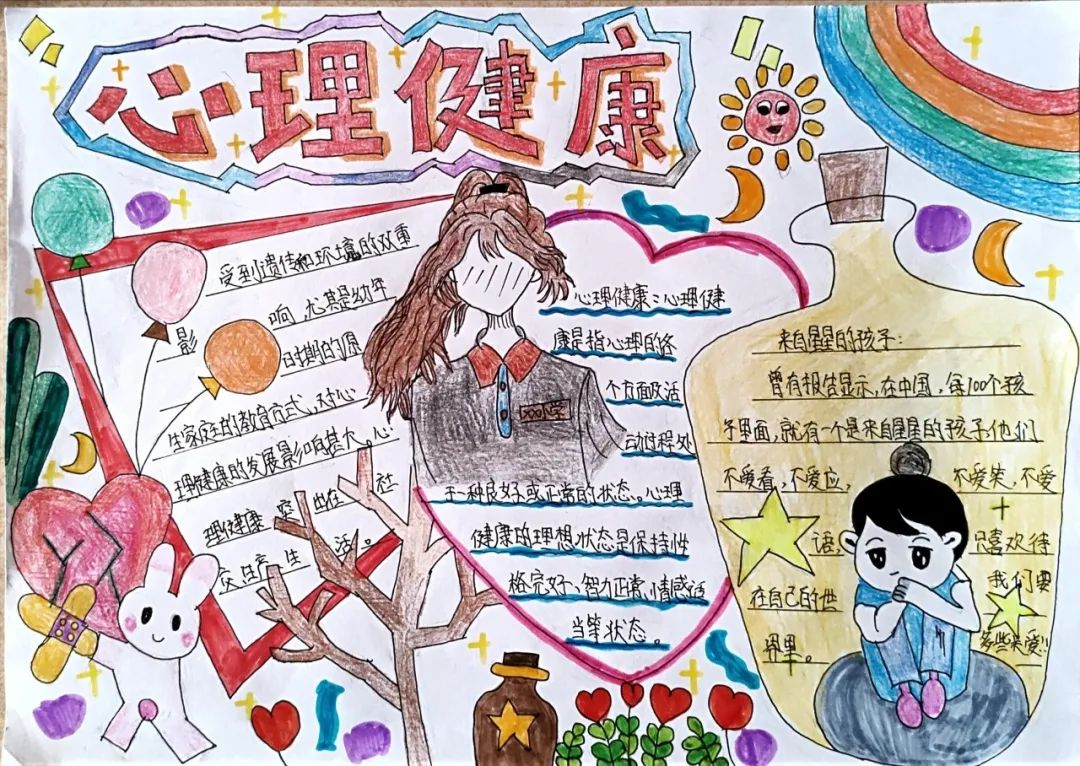 心理健康
受到遗传和环境的双重
影响，尤其是幼年
时期的原
生家庭的教育方式，对心
理健康的发展影响甚大。心
理健康 也在 社
交生产生活。
心理健康：心理健
康是指心理的各
个方面及活
动过程处
于一种良好或正常的状态。心理
健康的理想状态是保持性
格完好、智力正常、情感适
当等状态。
XX小学
来自星星的孩子：
曾有报告显示，在中国，每100个孩
子里面，就有一个是来自星星的孩子他们
不爱看，不爱应， 不爱笑，不爱
语， 只喜欢待
在自己的世
界里。
我们要
多些来爱!!